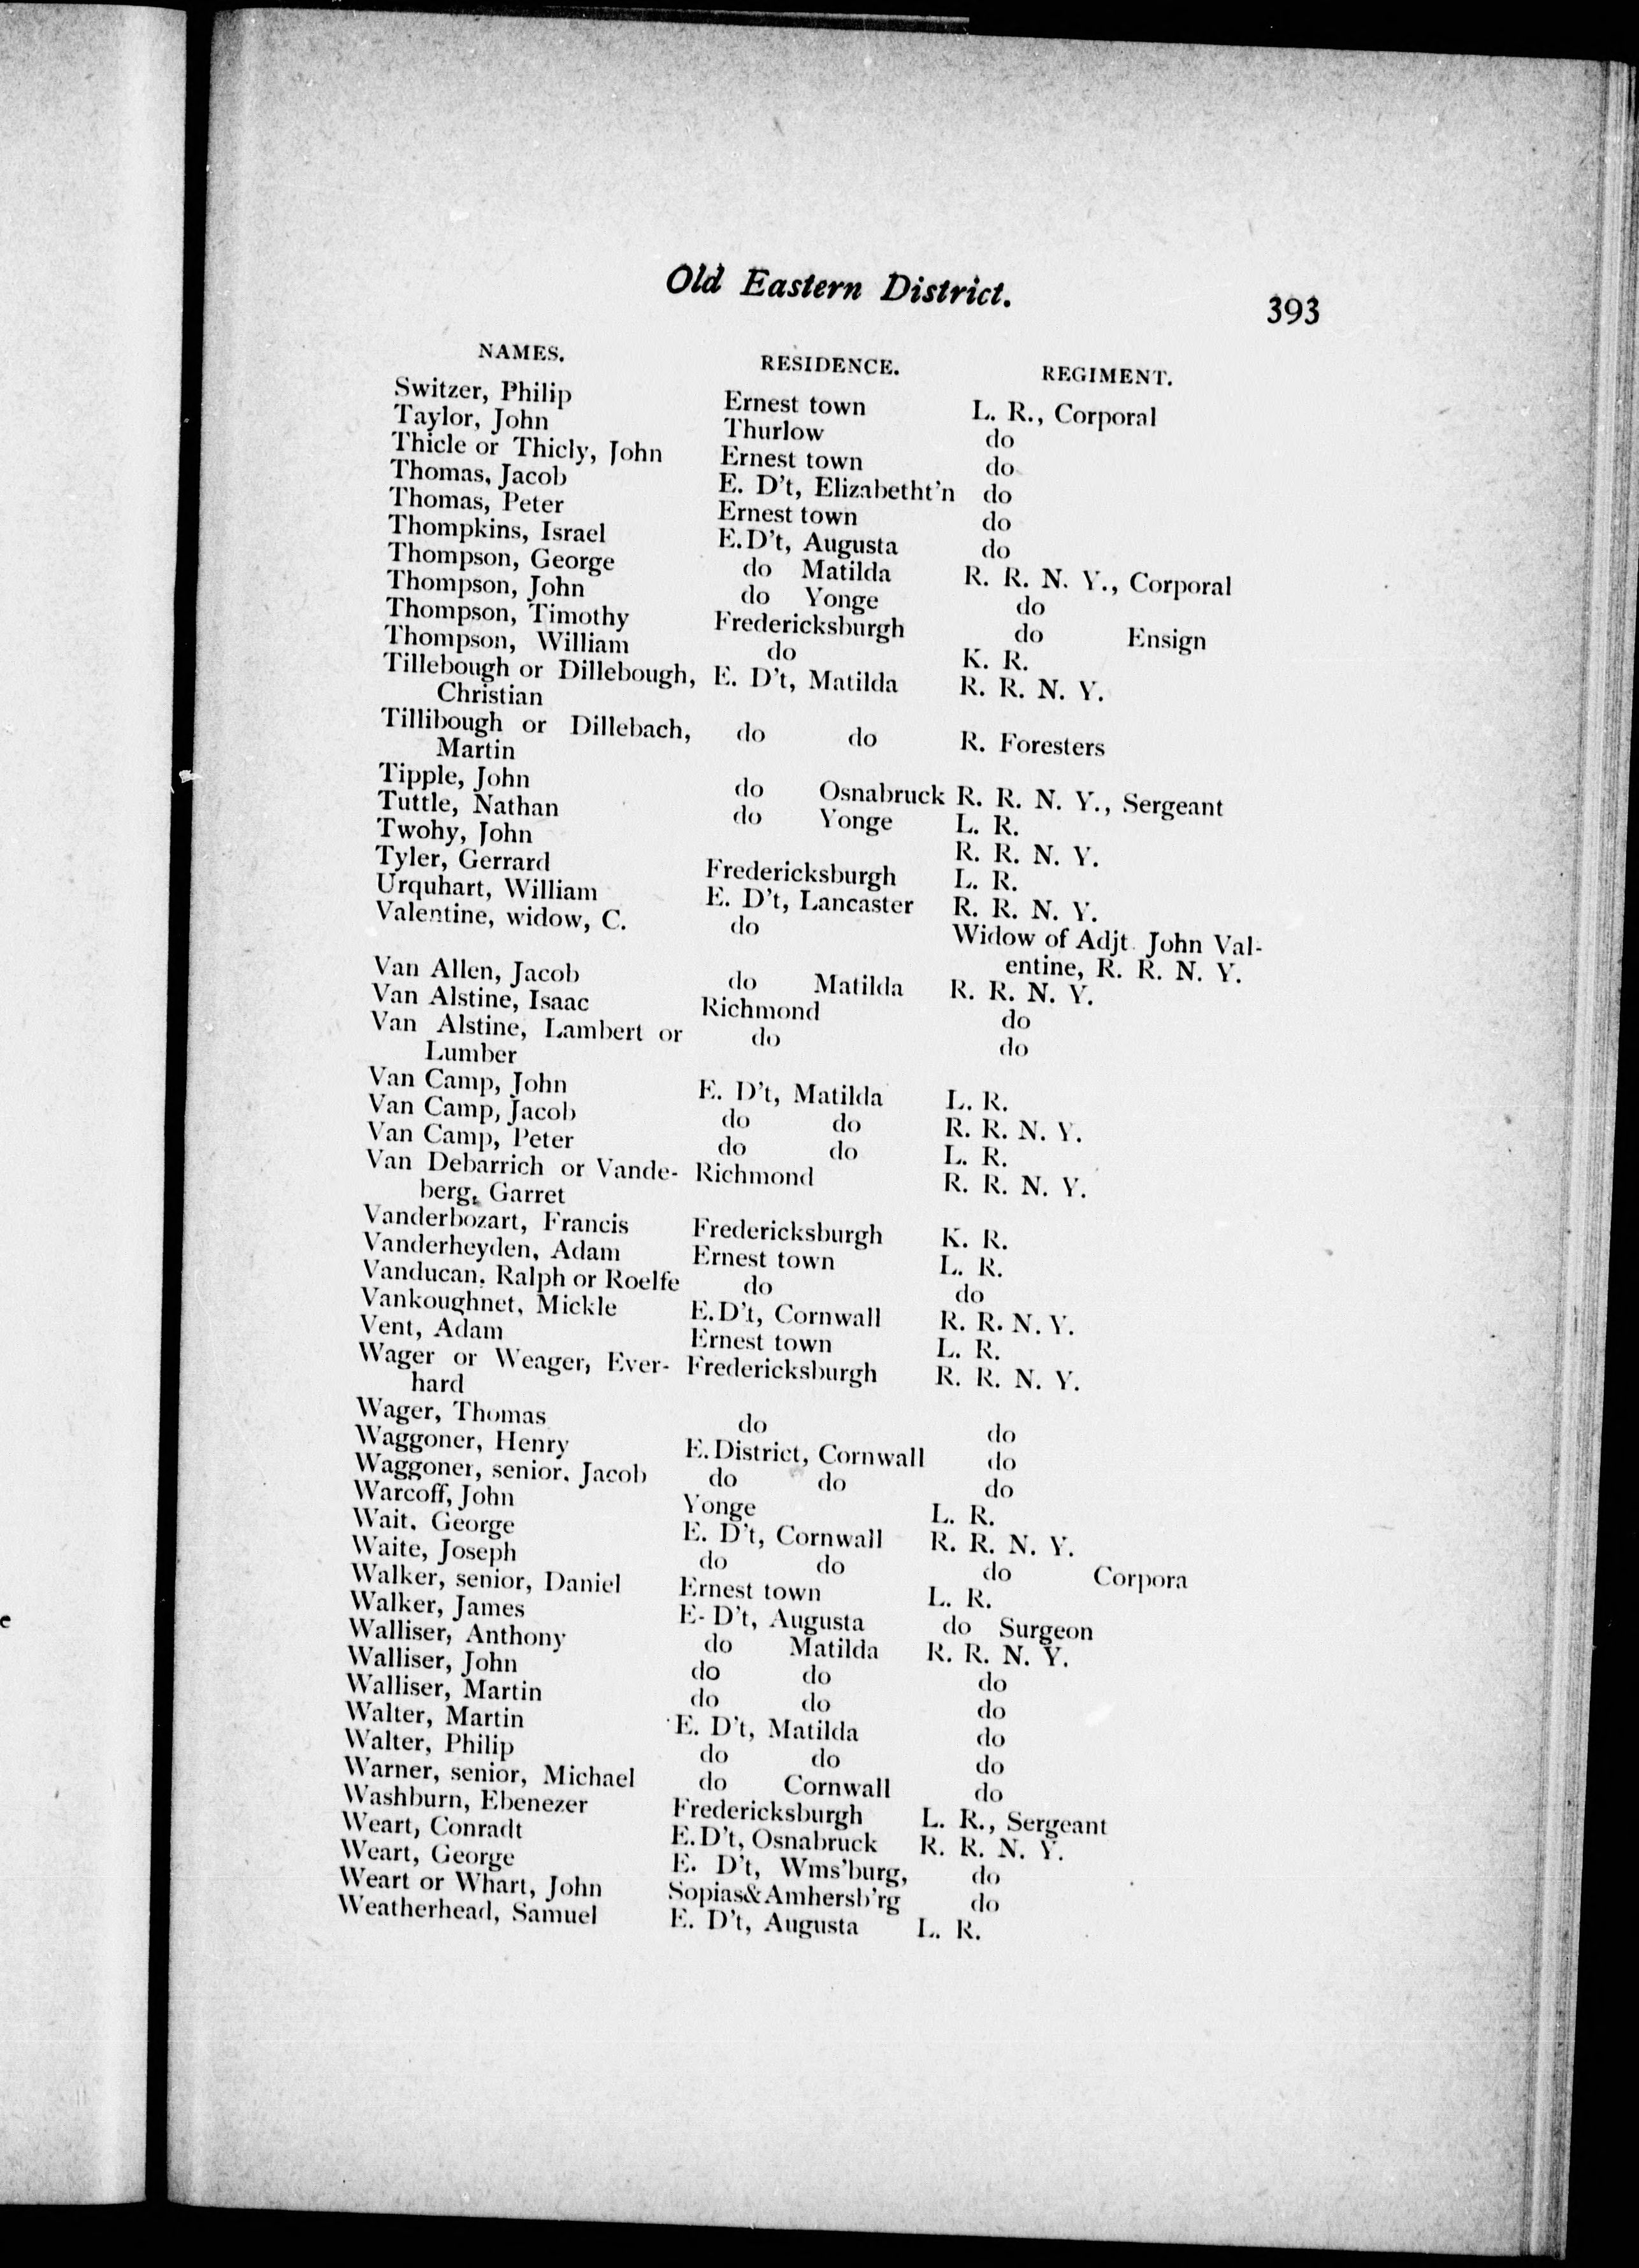 Old Eastern District. 393
NAMES. RESIDENCE. REGIMENT.
Switzer, Philip Ernest town L. R., Corporal
Taylor, John Thurlow do
Thicle or Thicly, John Ernest town do
Thomas, Jacob E. D't, Elizabetht'n do
Thomas, Peter Ernest town do
Thompkins, Israel E.D't, Augusta do
Thompson, George do Matilda R. R. N. Y., Corporal
Thompson, John do Yonge do
Thompson, Timothy Fredericksburgh do Ensign
Thompson, William do K. R.
Tillebough or Dillebough, E. D't, Matilda R. R. N. Y.
Christian
Tillibough or Dillebach, do do R. Foresters
Martin
Tipple, John do Osnabruck R. R. N. Y., Sergeant
Tuttle, Nathan do Yonge L. R.
Twohy, John R. R. N. Y.
Tyler, Gerrard Fredericksburgh L. R.
Urquhart, William E. D't, Lancaster R. R. N. Y.
Valentine, widow, C. do Widow of Adjt. John Val-
entine, R. R. N. Y.
Van Allen, Jacob do Matilda R. R. N. Y.
Van Alstine, Isaac Richmond do
Van Alstine, Lambert or do do
Lumber
Van Camp, John E. D't, Matilda L. R.
Van Camp, Jacob do do R. R. N. Y.
Van Camp, Peter do do L. R.
Van Debarrich or Vande- Richmond R. R. N. Y.
berg, Garret
Vanderbozart, Francis Fredericksburgh K. R.
Vanderheyden, Adam Ernest town L. R.
Vanducan, Ralph or Roelfe do do
Vankoughnet, Mickle E.D't, Cornwall R. R. N. Y.
Vent, Adam Ernest town L. R.
Wager or Weager, Ever- Fredericksburgh R. R. N. Y.
hard
Wager, Thomas do do
Waggoner, Henry E. District, Cornwall do
Waggoner, senior, Jacob do do do
Warcoff, John Yonge L. R.
Wait, George E. D't, Cornwall R. R. N. Y.
Waite, Joseph do do do Corpora
Walker, senior, Daniel Ernest town L. R.
Walker, James E- D't, Augusta do Surgeon
Walliser, Anthony do Matilda R. R. N. Y.
Walliser, John do do do
Walliser, Martin do do do
Walter, Martin E. D't, Matilda do
Walter, Philip do do do
Warner, senior, Michael do Cornwall do
Washburn, Ebenezer Fredericksburgh L. R., Sergeant
Weart, Conradt E.D't, Osnabruck R. R. N. Y.
Weart, George E. D't, Wms'burg, do
Weart or Whart, John Sopias&Amhersb'rg do
Weatherhead, Samuel E. D't, Augusta L. R.
e